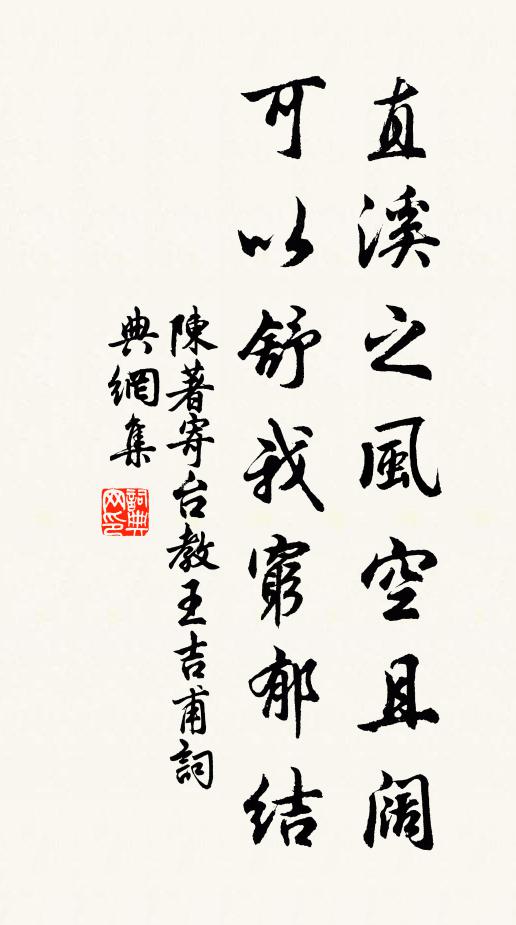 直溪之風空且阔
可以舒我窮郁结
陳著寄台教王吉甫詞
典網集
詞典网印